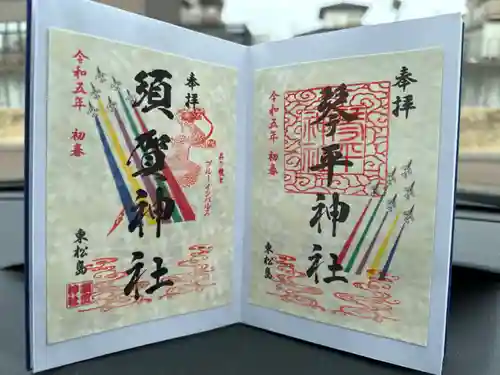 奉拝
須賀神社
令和五年 初春
東松島
ブルーインパルス
奉拝
琴平神社
令和五年 初春
東松島